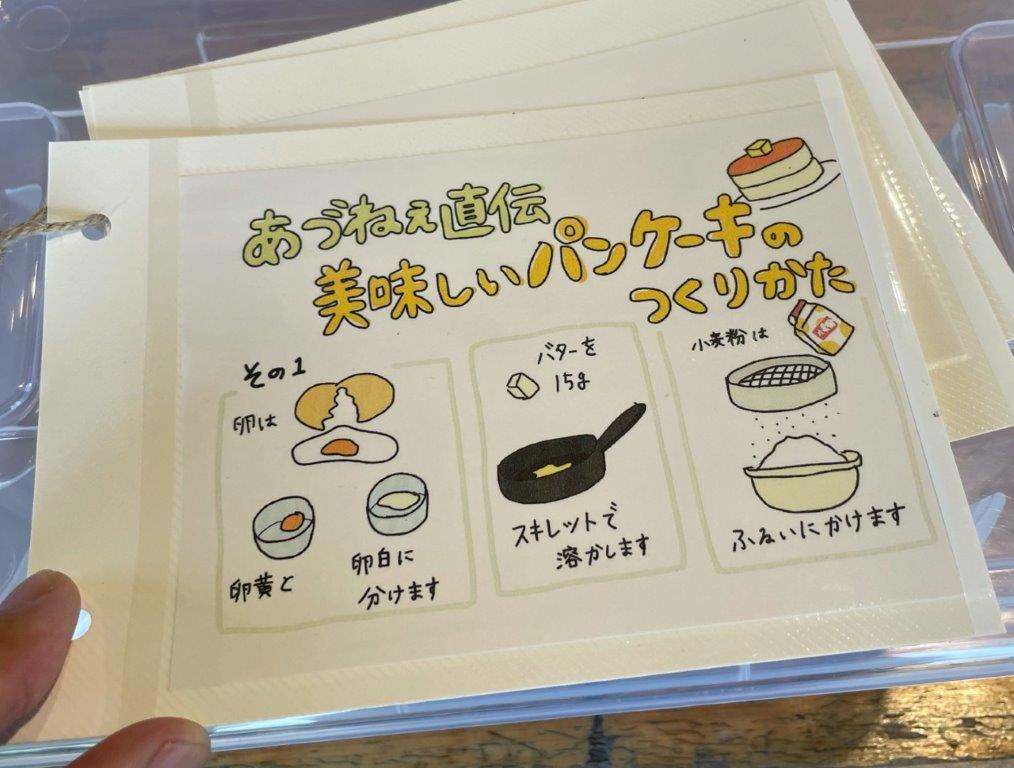 あづねぇ直伝
美味しいパンケーキの
つくりかた
その1
卵は
卵黄と
卵白に
分けます
バターを
15g
スキレットで
溶かします
小麦粉は
ふるいにかけます